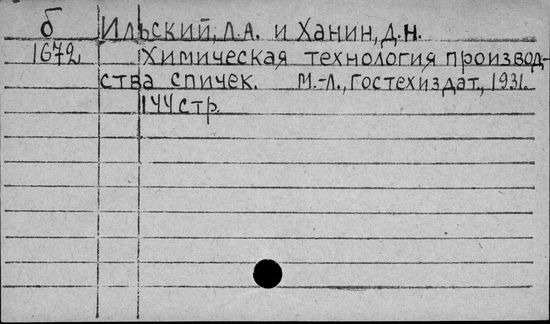 б Ильский, Л.А. и Ханин, Д.Н.
1672 Химическая технология производ-
ства спичек. М.-Л., Гостехиздат, 1931.
144 стр.